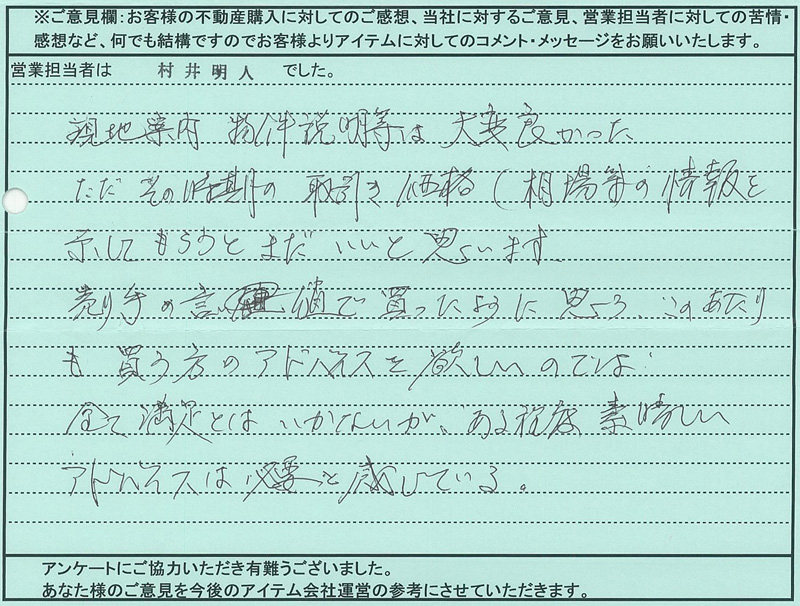 ※ご意見欄:お客様の不動産購入に対してのご感想、当社に対するご意見、営業担当者に対しての苦情・
感想など、何でも結構ですのでお客様よりアイテムに対してのコメント・メッセージをお願いいたします。
営業担当者は 村井明人 でした。
現地案内 物件説明等は 大変良かった
ただ その時期の 取引き価格(相場等の情報を
示してもらうと まだ いいと思います
売り手の言い値で買ったように思う、このあたり
も 買う方のアドバイスを欲しいのでは
全て満足とは いかないが、ある程度 素晴しい
アドバイスは必要と感じている。
アンケートにご協力いただき有難うございました。
あなた様のご意見を今後のアイテム会社運営の参考にさせていただきます。